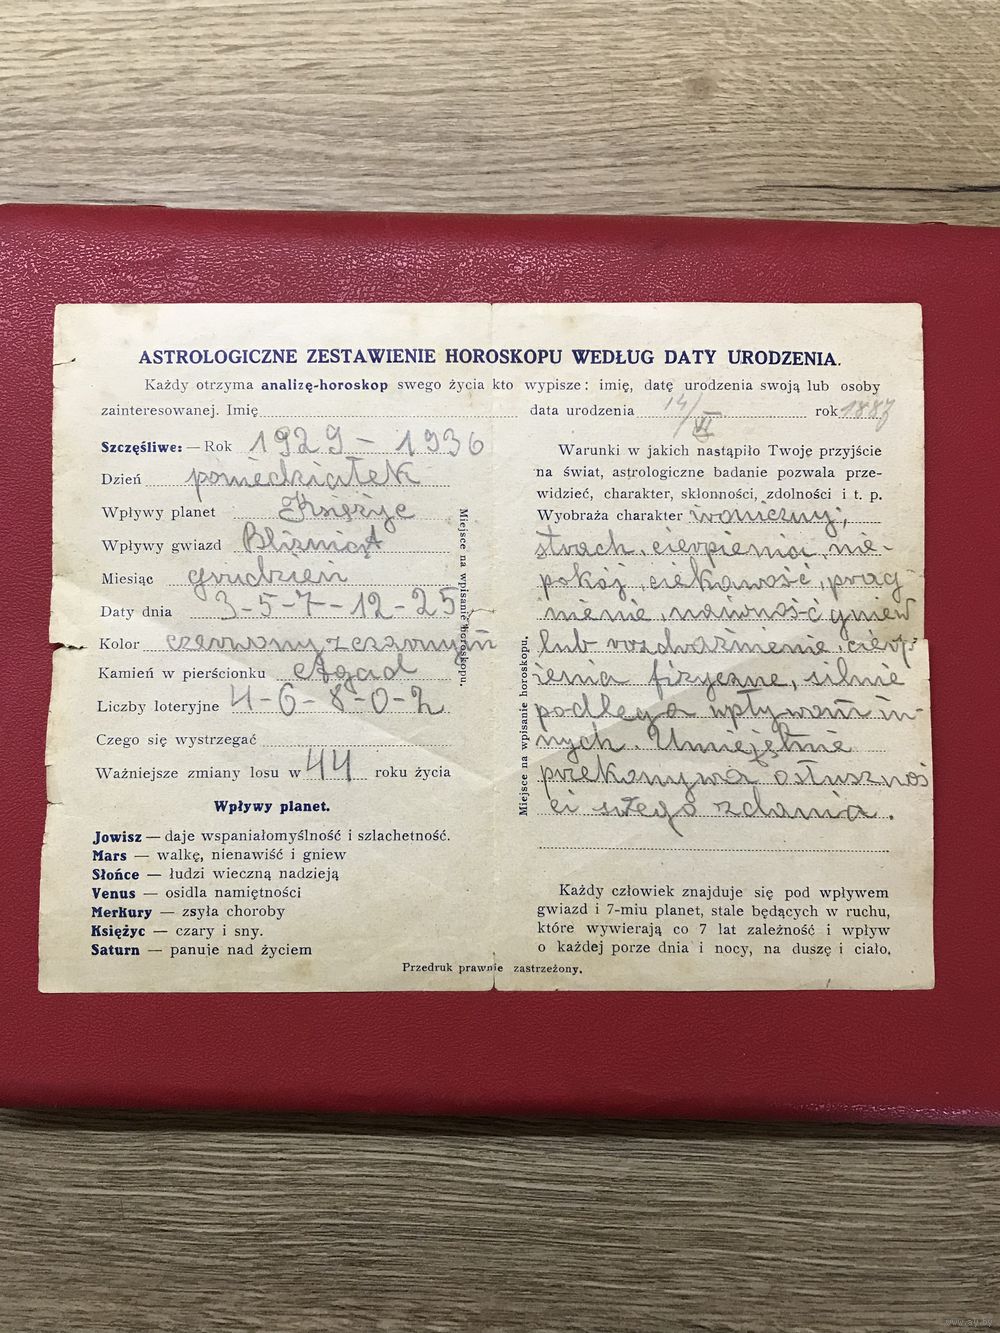 ASTROLOGICZNE ZESTAWIENIE HOROSKOPU WEDŁUG DATY URODZENIA.
Każdy otrzyma analizę-horoskop swego życia kto wypisze: imię, datę urodzenia swoją lub osoby
zainteresowanej. Imię data urodzenia 14/VI rok 1887
Szczęśliwe: — Rok 1929 - 1936
Dzień poniedziałek
Wpływy planet Księżyc
Wpływy gwiazd Bliźniąt
Miesiąc grudzień
Daty dnia 3-5-7-12-25
Kolor czerwony z czarnym
Kamień w pierścionku Agad
Liczby loteryjne 4-6-8-0-2
Czego się wystrzegać
Ważniejsze zmiany losu w 44 roku życia
Wpływy planet.
Jowisz — daje wspaniałomyślność i szlachetność.
Mars — walkę, nienawiść i gniew
Słońce — łudzi wieczną nadzieją
Venus — osidla namiętności
Merkury — zsyła choroby
Księżyc — czary i sny.
Saturn — panuje nad życiem
Miejsce na wpisanie horoskopu.
Miejsce na wpisanie horoskopu.
Warunki w jakich nastąpiło Twoję przyjście
na świat, astrologiczne badanie pozwala prze-
widzieć, charakter, skłonności, zdolności i t. p.
Wyobraża charakter ironiczny;
strach, cierpienia, nie-
pokój, ciekawość, prag-
nienie, naiwność gniew
lub rozdrażnienie, cierp
ienia fizyczne, silnie
podlega wpływom in-
nych. Umiejętnie
przekonywa o słusznoś
ci swego zdania.
Każdy człowiek znajduje się pod wpływem
gwiazd i 7-miu planet, stale będących w ruchu,
które wywierają co 7 lat zależność i wpływ
o każdej porze dnia i nocy, na duszę i ciało.
Przedruk prawnie zastrzeżony.
www.ay.by